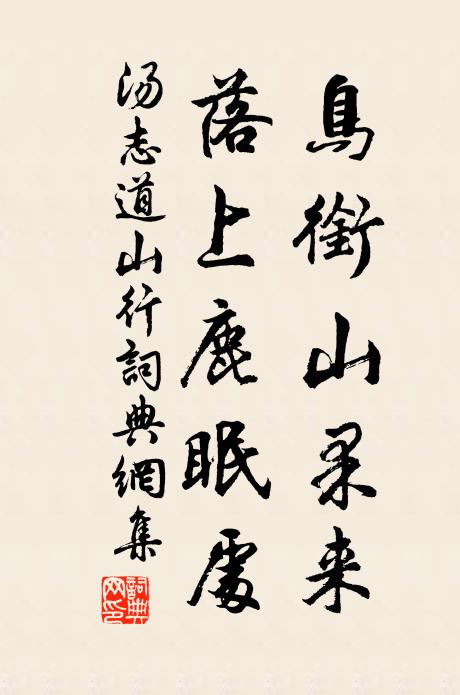 鳥銜山果来
落上鹿眠處
汤志道山行詞典網集
詞典
网印